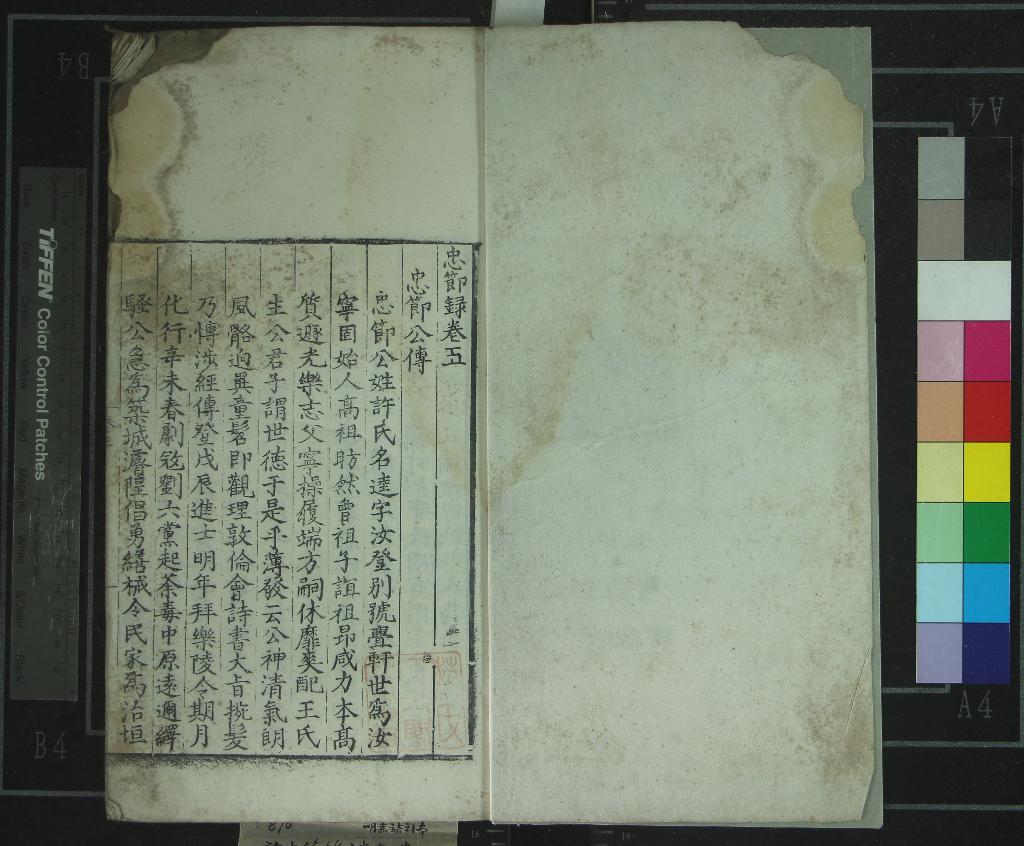 忠節録卷五
忠節公傳
忠節公姓許氏名逵字汝登别號疊軒世爲汝
寧固始人高祖昉然曾祖子誼祖昻咸力本髙
質遯光樂志父寧操履端方嗣休靡爽配王氏
生公君子謂世徳于是乎薄發云公神清氣朗
風骼逈異童髫即觀理敦倫會詩書大旨㧡髪
乃愽涉經傳登戊辰進士明年拜樂陵令期月
化行辛未春劇宼劉六黨起荼毒中原遠邇繹
騷公急爲築城濬隍倡勇繕械令民家爲治垣
TIFFEN Color Control Patches
Blue
Cyan
Green
Yellow
Red
Magenta
White
3/Color
Black
B4
B4
A4
A4